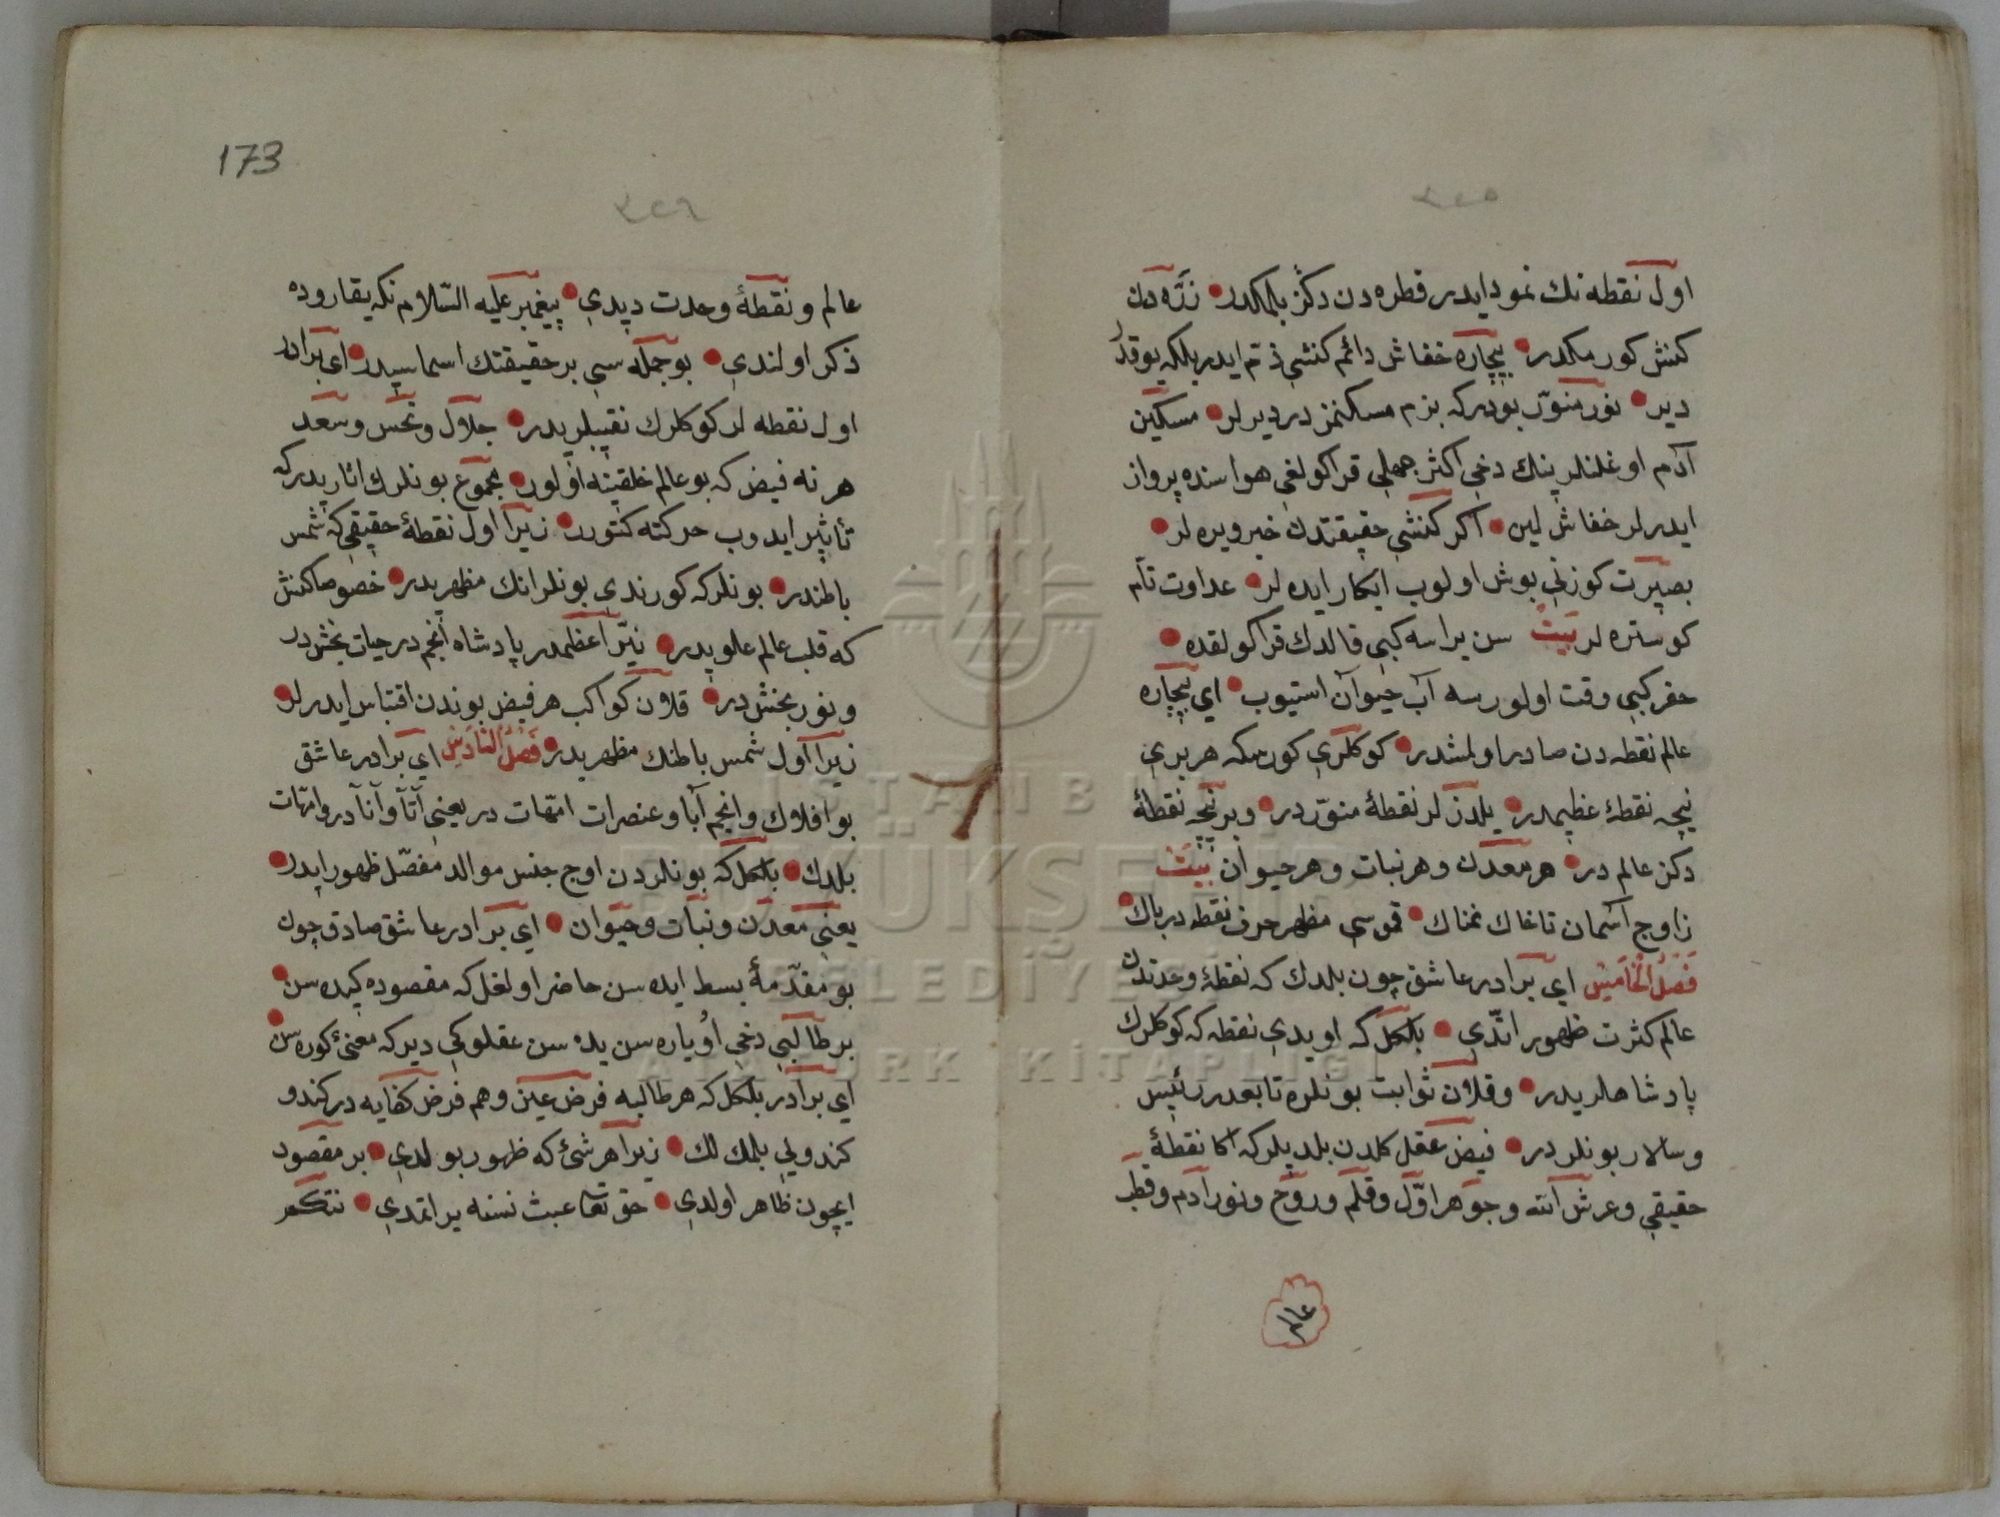 ٣٤٥
اول نقطه نك نمود ايدر قطره دن دكز بلمكدر ذرّه دن
كنش كورمكدر بيچاره خفاش دائم كنشی ذمّ ايدر بلكه يوقدر
دير نور منوّر بودركه بزم مسكنمزدر ديرلر مسكين
آدم اوغلنلرينك دخی اكثر جهلی قراكولغی هواسنده پرواز
ايدرلر خفاش لين اكر كنشی حقيقتدن خبر ويره لر
بصيرت كوزنی يوش اولوب انكار ايده لر عداوت تام
كوستره لر بيت سن يراسه كبی قالدك قراكولقده
خضر كبی وقت اولورسه آب حيوان استيوب ای بيچاره
عالم نقطه دن صادر اولمشدر كوكلری كورمسكه هر بری
نيجه نقطۀ عظيمدر يلدزلر نقطۀ منوّردر و بر نيجه نقطۀ
دكز عالم در هر معدن و هر نبات و هر حيوان بيت
زاوج آسمان تا خاك نمناك قموسی مظهر حرف نقطه در پاك
فصل الخامس ای برادر عاشق چون بلدك كه نقطۀ وحدتدن
عالم كثرت ظهور اتّدی بلكل كه اويدی نقطه كه كوكلرك
پادشاهلريدر و قلان ثوابت بونلره تابعدر رئيس
و سالار بونلردر فيض عقل كلدن بلديلركه اكا نقطۀ
حقيقی و عرش الله و جوهر اوّل و قلم و روح و نور آدم و قطب
عالم
173
٣٤٦
عالم و نقطۀ وحدت ديدی پيغمبر عليه السّلام نكه يقاروده
ذكر اولندی بو جمله سی بر حقيقتك اسماسيدر ای برادر
اول نقطه لر كوكلرك نقيبلريدر جلال و نحس و سعد
هر نه فيض كه بو عالم خلقينه اولور مجموع بونلرك اثاريدركه
تأثير ايدوب حركته كتورر زيرا اول نقطۀ حقيقی كه شمس
باطندر بونلركه كورندی بونلر انك مظهريدر خصوصا كنش
كه قلب عالم علويدر نيّر اعظمدر پادشاه انجم در حيات بخش در
و نور بخش در قلان كواكب هر فيض بوندن اقتباس ايدرلر
زيرا اول شمس باطنك مظهريدر فصل السّادس ای برادر عاشق
بو افلاك و انجم آبا و عنصرات امّهات در يعنی آتا و آنا در و امّهات
بلدك بلكل كه بونلردن اوچ جنس موالد مفصّل ظهور ايدر
يعنی معدن و نبات و حيوان ای برادر عاشق صادق چون
بو مقدّمۀ بسط ايده سن حاضر اولغل كه مقصوده كيده سن
بر طالبی دخی اوياره سن يده سن عقلوكی ديركه معنیٔ كوره سن
ای برادر بلكل كه هر طالبه فرض عين و هم فرض كفايه در كندو
كندويی بلمك لك زيرا هر شیٔ كه ظهور بولدی بر مقصود
ايچون ظاهر اولدی حق تعا عبث نسنه يراتمدی نتكم